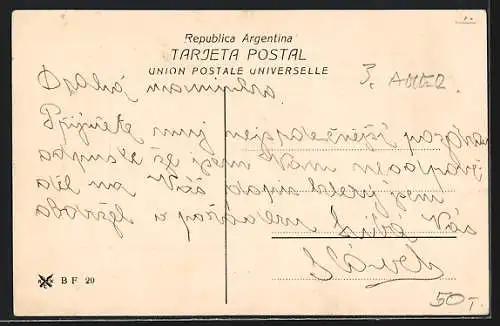 Republica Argentina
TARJETA POSTAL
UNION POSTALE UNIVERSELLE
3. AMER.
Drahá maminko.
Přijměte muj nejsrdečnější pozdrav
odpusťe že jsem Vám neodpově
děl na Váš dopis který jsem
obdržel v pořádku Líbá Vás
BF 20
50,-